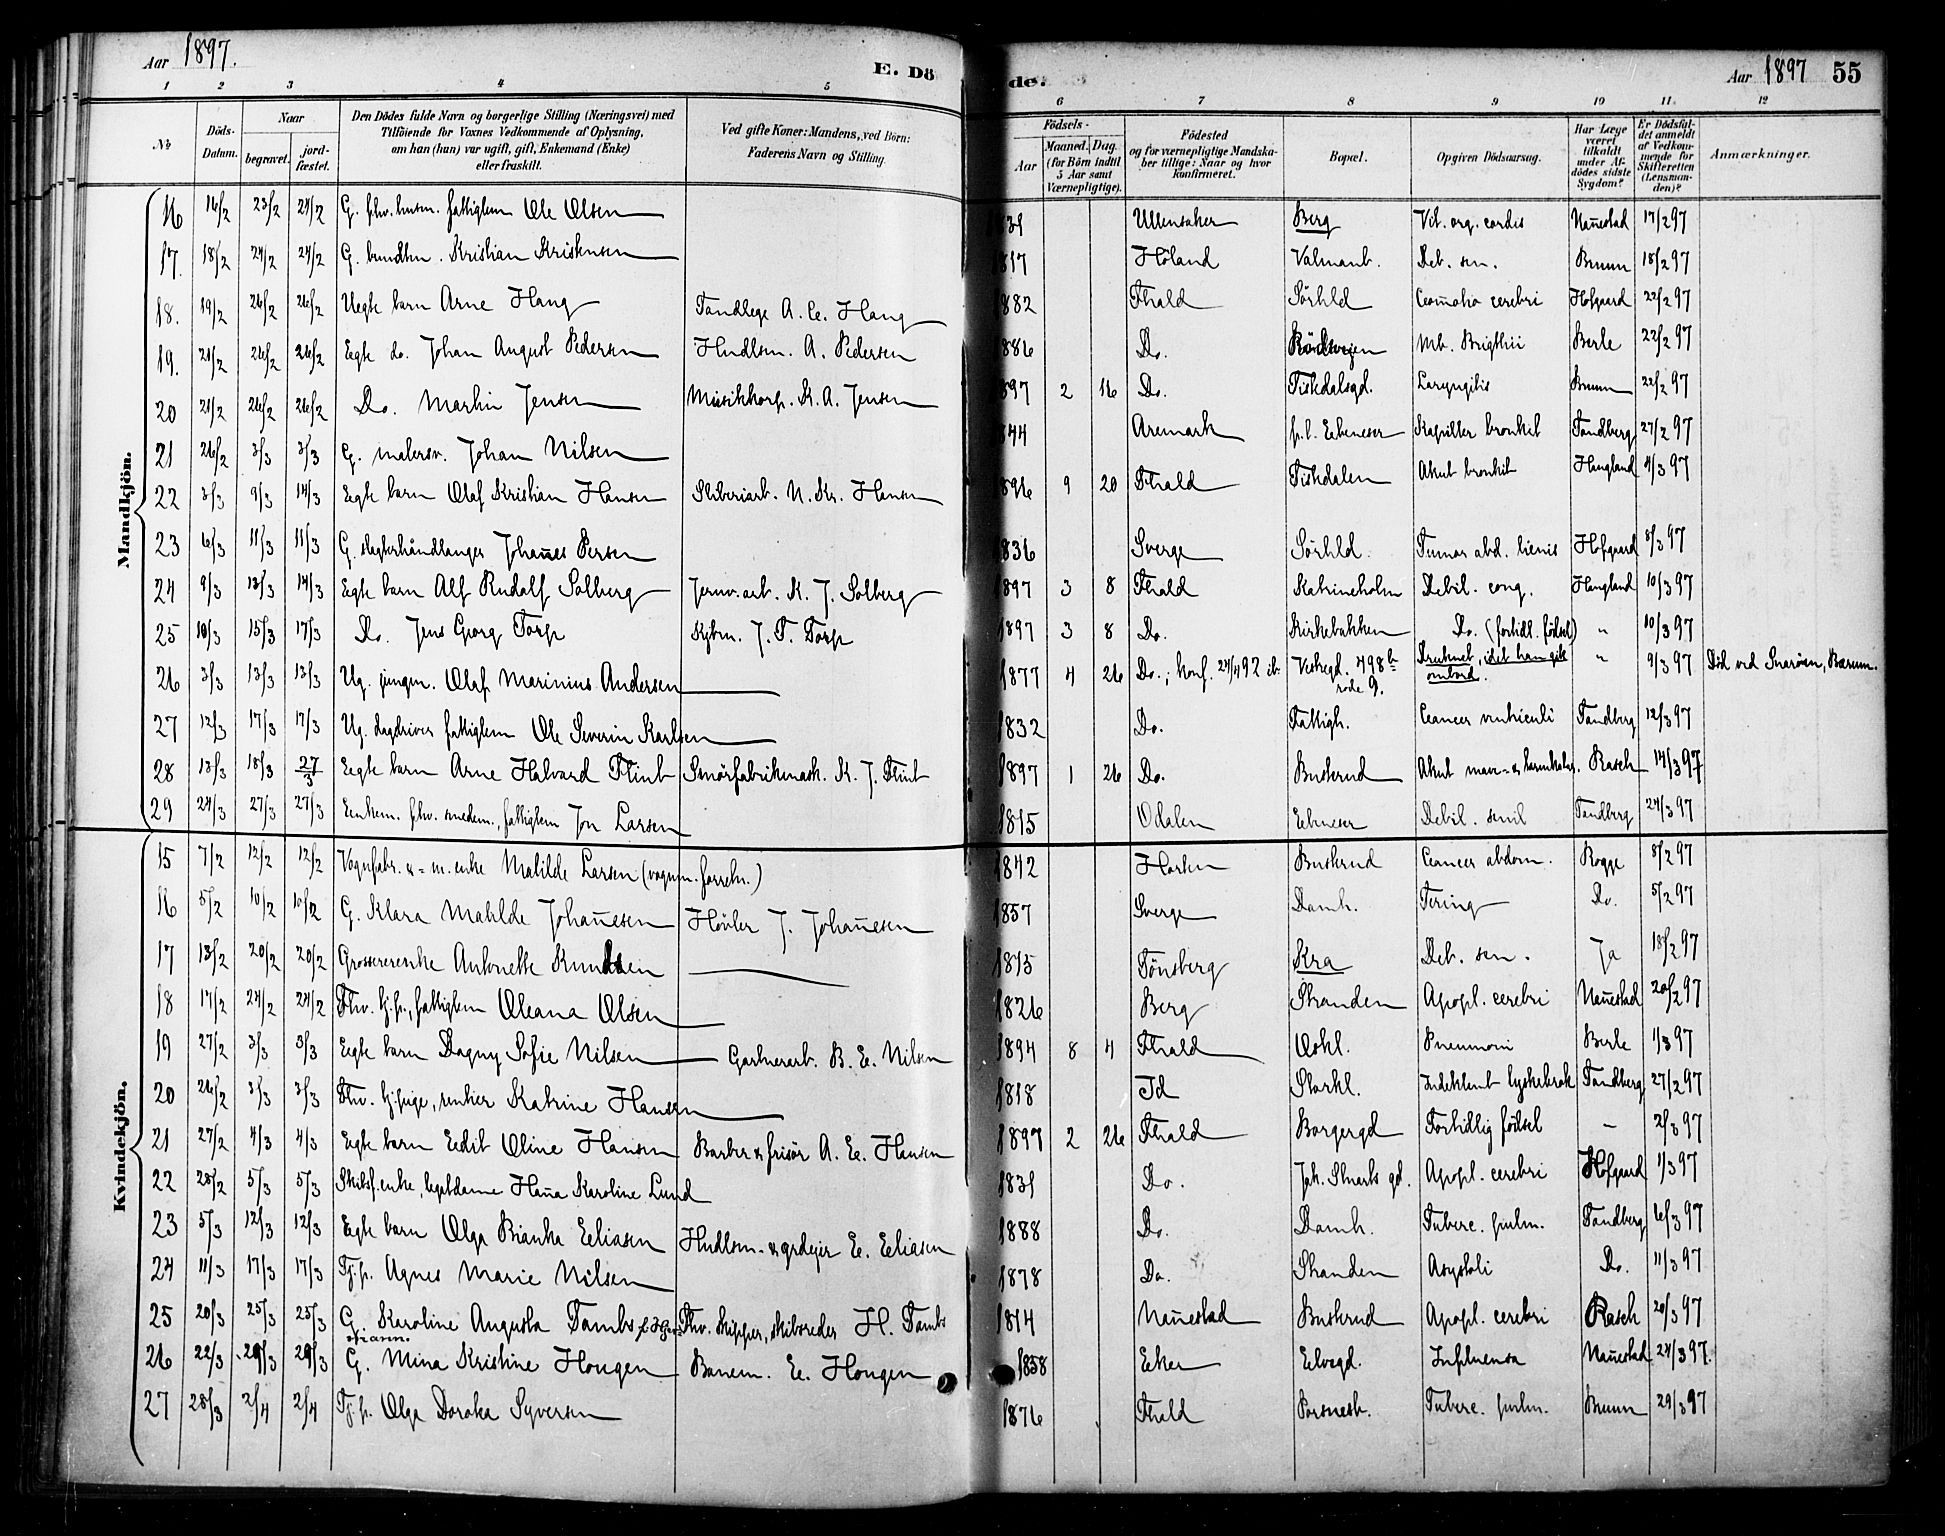 Aar 1897. E. Dö de. Aar 1897 55
1 2 3 4 5 6 7 8 9 10 11 12
No
Döds-Datum.
Naar
begravet.
jord-fæstet.
Den Dödes fulde Navn og borgerlige Stilling (Næringsvei) med
Tilföiende for Voxnes Vedkommende af Oplysning,
om han (hun) var ugift, gift, Enkemand (Enke)
eller fraskilt.
Ved gifte Koner: Mandens, ved Börn:
Faderens Navn og Stilling.
Födsels-
Aar
Maaned. Dag.
(for Börn indtil
5 Aar samt
Værnepligtige).
Födested
og for værnepligtige Mandska-
ber tillige: Naar og hvor
konfirmeret.
Bopæl.
Opgiven Dödsaarsag.
Har Læge
været
tilkaldt
under Af-
dödes sidste
Sygdom?
Er Dödsfal-
det anmeldt
af Vedkom-
mende for
Skifteretten
(Lensman-
den)?
Anmærkninger.
Mandkjön.
16 16/2 23/2 24/2 G. fhv. husm. fattiglem Ole Olsen 1839 Ullensaker Berg Vit. org. cordis Nannestad 17/2 97
17. 18/2 24/2 24/2 G. Kristian Kristensen 1817 Höland Valmanb. Deb. sen. Bruun 18/2 97
18. 19/2 26/2 26/2 Uegte barn Arne Haug Tandlege A. E. Haug 1882 Fhald Sörhld 	cerebri Hofgaard 22/2 97
19. 21/2 26/2 26/2 Egte do. Johan August Pedersen Hndlsm. A. Pedersen 1886 Do. Mb. Brigthii Berle 22/2 97
20 21/2 26/2 26/2 Do. Martin Jensen Musikkorp. K. A. Jensen 1897 2 16 Do. Tistedalsgd. Laryngitis Bruun 22/2 97
21 26/2 3/3 3/3 G. malersv. Johan Nilsen 1844 Aremark Ebeneser Kapillær bronkit Tandberg 27/2 97
22 3/3 9/3 14/3 Egte barn Olaf Kristian Hansen Sliberiarb. N. Kr. Hansen 1896 9 20 Fhald Tistedalen Akut bronkit Haugland 4/3 97
23 6/3 11/3 11/3 G. slagterhåndlanger Johannes Persen 1836 Sverge Sörhld. Tumor abd. lienis Hofgaard 8/3 97
24 9/3 13/3 14/3 Egte barn Alf Rudolf Solberg Jernv.arb. K. J. Solberg 1897 3 8 Fhald Katrineholm Debil. cong. Haugland 10/3 97
25 10/3 15/3 17/3 Do. Jens Georg Torp Kjbm. J. T. Torp 1897 3 8 Do. Kirkebakken Do. (fortidl. födsel) " 10/3 97
26 3/3 13/3 13/3 Ug. jungm. Olaf Marinius Andersen 1877 4 26 Do.; konf. 24/4 92 ib. Vestregd. 498 b rode 9. Druknet, idet han gik ombord. " 9/3 97 Död ved Snaröen, Bærum.
27 12/3 17/3 17/3 Ug. dagdriver fattiglem Ole Severin Karlsen 1832 Do. Fattigh. Cancer ventriculi Tandberg 12/3 97
28 13/3 18/3 27/3 Egte barn Arne Halvard Flint Smörfabrikmask. K. J. Flint 1897 1 26 Do. Buskrud Akut mave- & tarmkatar. Rasch 14/3 97
29 24/3 27/3 27/3 Enkem. fhv. smedem., fattiglem Jon Larsen 1815 Odalen Ebeneser Debil. senil Tandberg 24/3 97
Kvindekjön.
15 7/2 12/2 12/2 Vognfabr. & = m. enke Matilde Larsen (vognm. forretn.) 1842 Horten Buskrud Cancer abdom. Rogge 8/2 97
16 5/2 10/2 10/2 G. Klara Matilde Johannesen Hövler J. Johannesen 1857 Sverge Damh. Tæring Do. 5/2 97
17 13/2 20/2 20/2 Grossererenke Antonette Knudsen 1815 Tönsberg Kra Deb. sen. Ja 18/2 97
18 17/2 24/2 24/2 Fhv. tj.p., fattiglem Oleana Olsen 1826 Berg Stranden Apopl. cerebri Nannestad 20/2 97
19 27/2 3/3 3/3 Egte barn Dagny Sofie Nilsen Gartnerarb. B. E. Nilsen 1894 8 4 Fhald Oskl. Pneumoni Berle 1/3 97
20 26/2 3/3 3/3 Fhv. tj.pige, rentier Katrine Hansen 1818 Id Storkl. Indeklemt lyskebrok Tandberg 27/2 97
21 27/2 4/3 4/3 Egte barn Edit Oline Hansen Barber & frisör A. E. Hansen 1897 2 26 Fhald Borgergd Fortidlig födsel – 2/3 97
22 28/2 5/3 5/3 Skibsf.enke, legatdame Hanna Karoline Lund 1839 Do. Joh. Stuarts gd. Apopl. cerebri Hofgaard 1/3 97
23 5/3 12/3 12/3 Egte barn Olga Bianka Eliasen Hndlsm. & grdejer E. Eliasen 1888 Do. Damh. Tuberc. pulm. Tandberg 6/3 97
24 11/3 17/3 17/3 Tj.p. Agnes Marie Nilsen 1878 Do. Stranden Asystoli Do. 11/3 97
25 20/3 25/3 25/3 G. Karoline Augusta Tambs Fhv. skipper, skibsreder H. Tambs 1814 Nannestad Buskrud Apopl. cerebri Rasch 20/3 97
26 22/3 29/3 29/3 G. Mina Kristine Hougen Banem. E. Hougen 1858 Eker Elvegd. Influensa Nannestad 24/3 97.
27 28/3 2/4 2/4 Tj.p. Olga Dorotea Syversen 1876 Fhald Porsnesb. Tuberc. pulm. Bruun 29/3 97